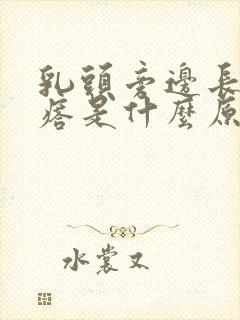 乳頭旁邊長
痞是什麼原
水裳又